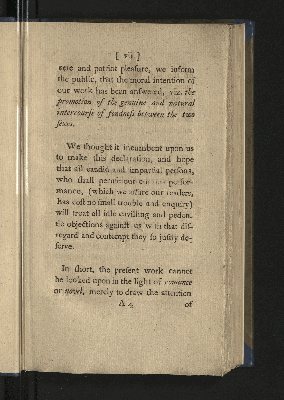 [ vii ]
cere and patriot pleaſure, we inform
the public, that the moral intention of
our work has been anſwered, viz. the
promotion of the genuine and natural
intercourſe of fondneſs between the two
ſexes.
We thought it incumbent upon us
to make this declaration, and hope
that all candid and impartial perſons,
who ſhall peruſe our curious perfor-
mance, (which we aſſure our readers,
has coſt no ſmall trouble and enquiry)
will treat all idle cavilling and pedan-
tic objections againſt us with that diſ-
regard and contempt they ſo juſtly de-
ſerve.
In ſhort, the preſent work cannot
be looked upon in the light of romance
or novel, merely to draw the attention
A 4 of